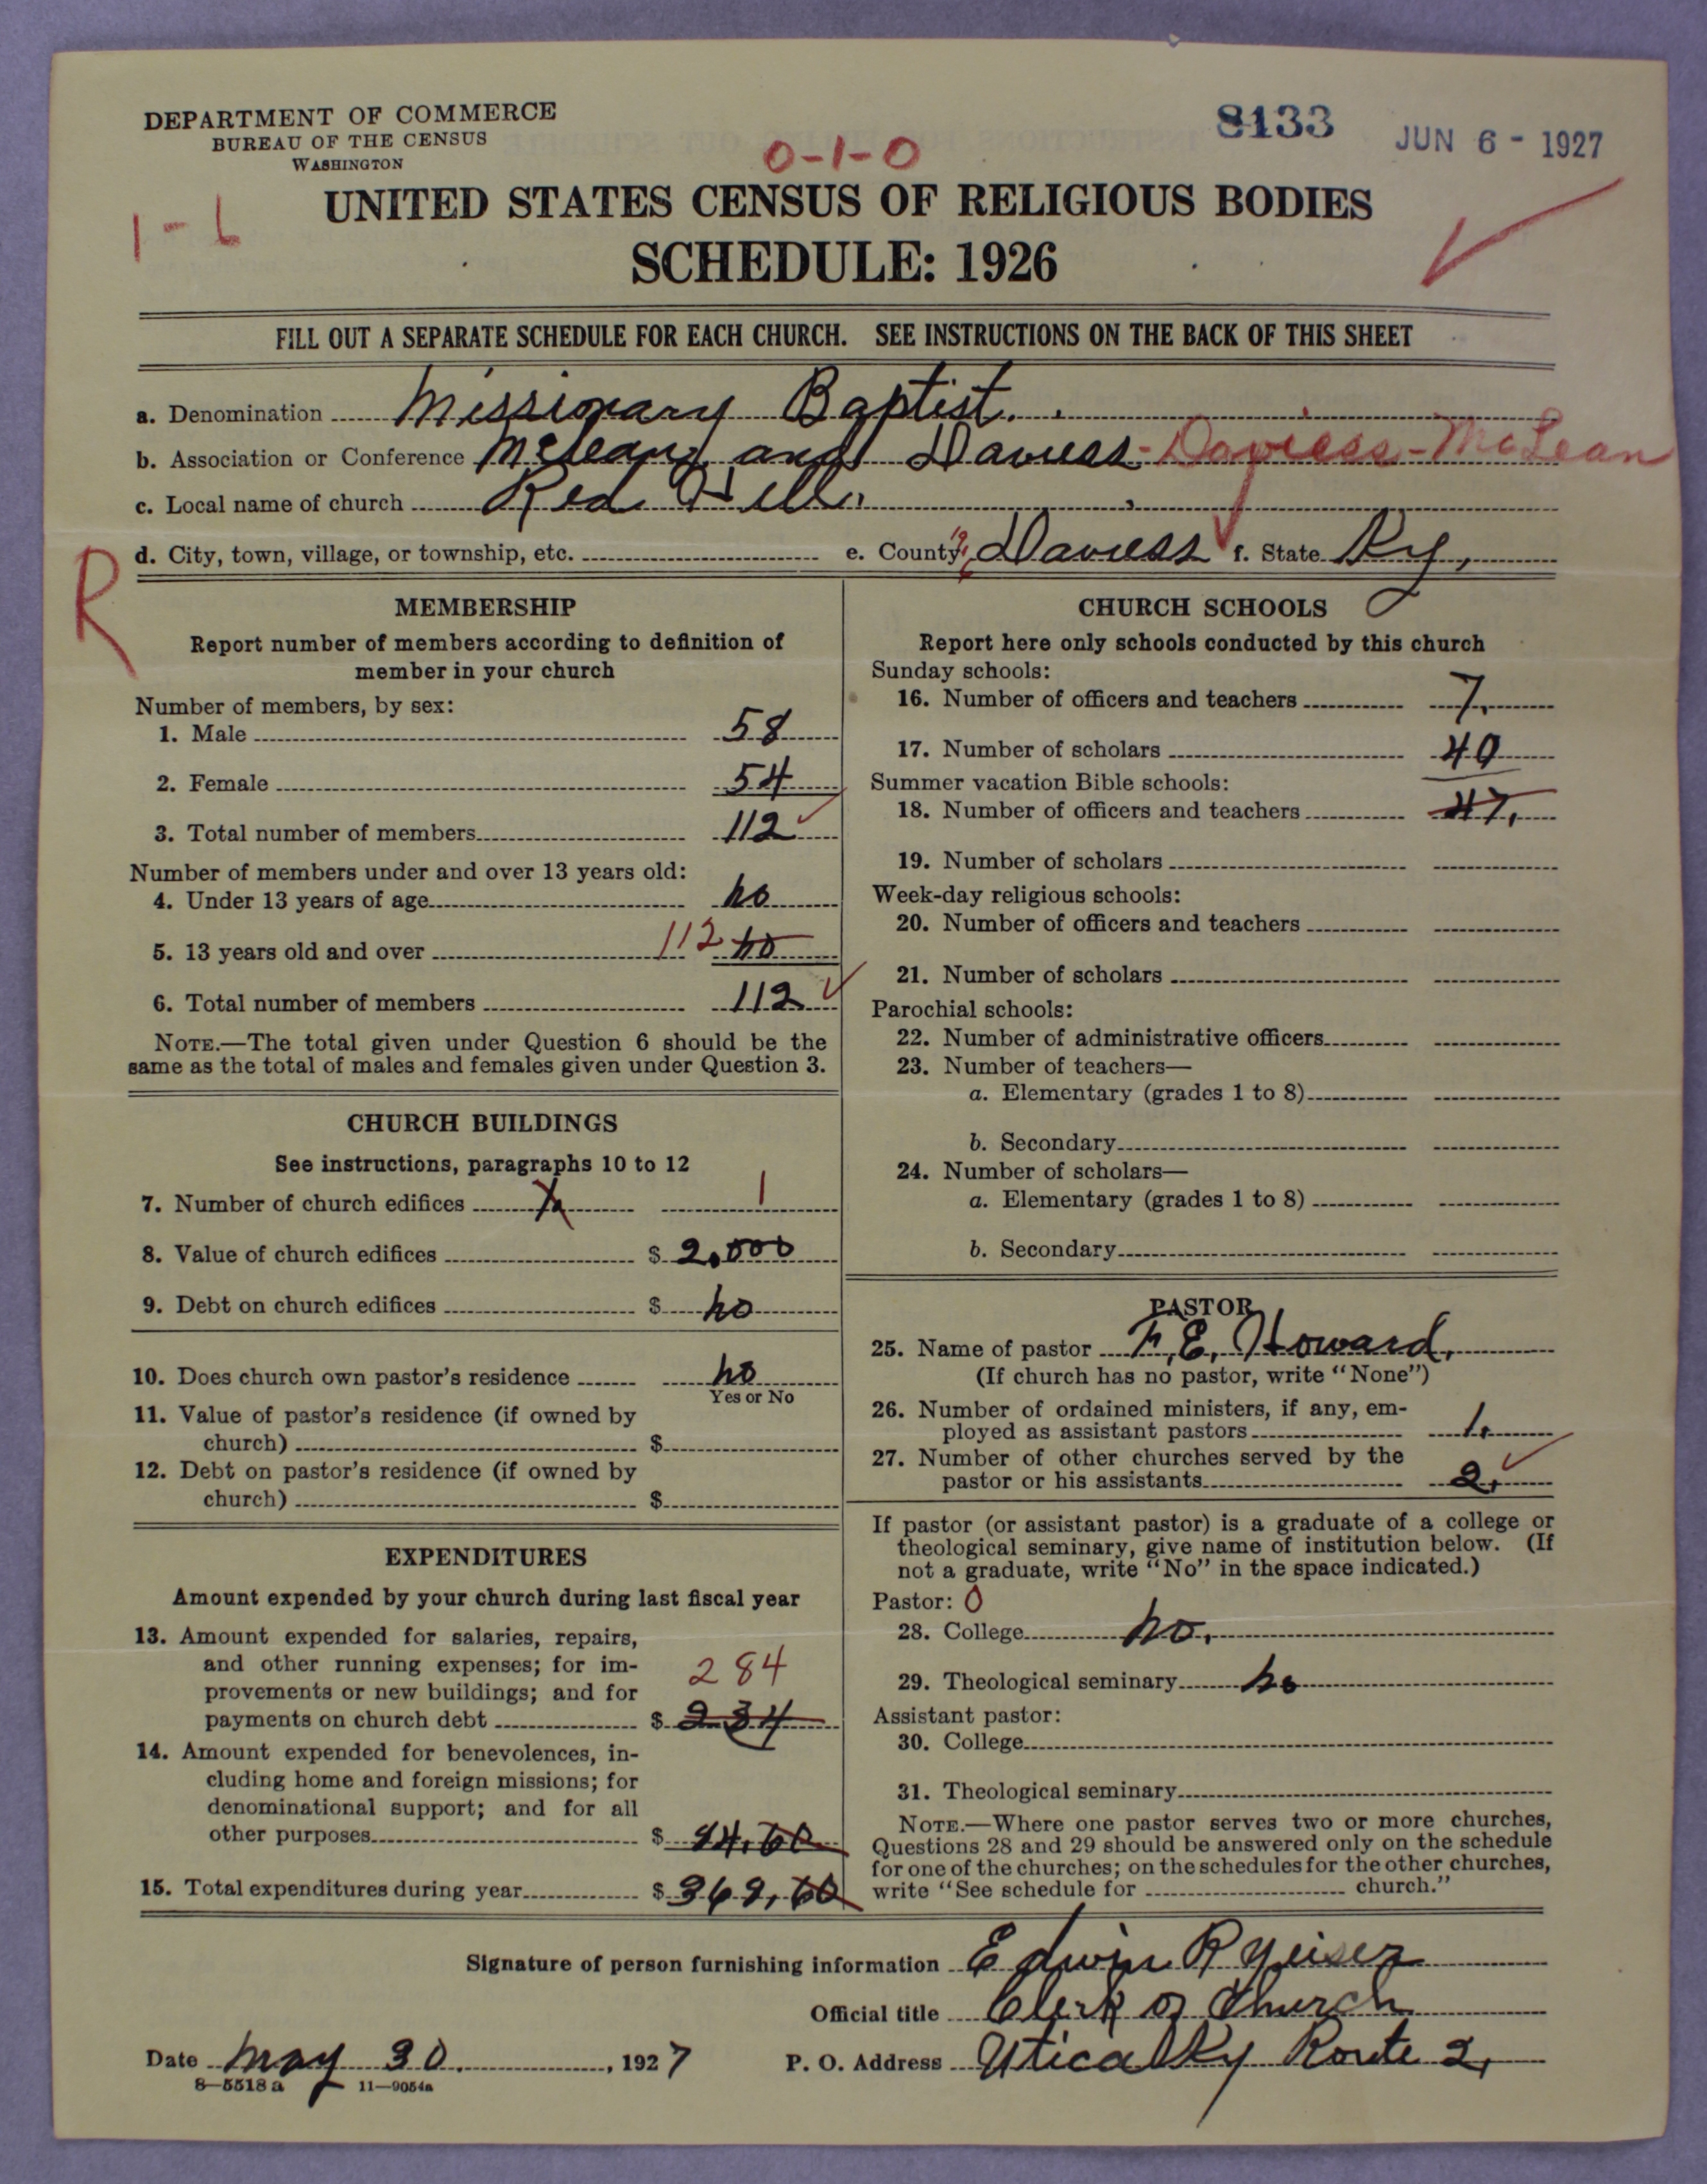 DEPARTMENT OF COMMERCE
BUREAU OF THE CENSUS
WASHINGTON
8133
JUN 6 - 1927
0-1-0
1-6
UNITED STATES CENSUS OF RELIGIOUS BODIES
SCHEDULE: 1926
FILL OUT A SEPARATE SCHEDULE FOR EACH CHURCH. SEE INSTRUCTIONS ON THE BACK OF THIS SHEET
a. Denomination Missionary Baptist.
b. Association or Conference McLean and Daviess - Daviess-McLean
c. Local name of church Red Hill.
d. City, town, village, or township, etc. e. County Daviess f. State Ky,
R
MEMBERSHIP
Report number of members according to definition of
member in your church
Number of members, by sex:
1. Male 58
2. Female 54
3. Total number of members 112
Number of members under and over 13 years old:
4. Under 13 years of age no
5. 13 years old and over 112 no
6. Total number of members 112
NOTE.—The total given under Question 6 should be the
same as the total of males and females given under Question 3.
CHURCH BUILDINGS
See instructions, paragraphs 10 to 12
7. Number of church edifices 1
8. Value of church edifices $ 2,000
9. Debt on church edifices $ no
10. Does church own pastor's residence no
Yes or No
11. Value of pastor's residence (if owned by
church) $
12. Debt on pastor's residence (if owned by
church) $
EXPENDITURES
Amount expended by your church during last fiscal year
13. Amount expended for salaries, repairs,
and other running expenses; for im-
provements or new buildings; and for 284
payments on church debt $ 234
14. Amount expended for benevolences, in-
cluding home and foreign missions; for
denominational support; and for all
other purposes $ 84.60
15. Total expenditures during year $ 369,60
CHURCH SCHOOLS
Report here only schools conducted by this church
Sunday schools:
16. Number of officers and teachers 7.
17. Number of scholars 40
Summer vacation Bible schools:
18. Number of officers and teachers 47.
19. Number of scholars
Week-day religious schools:
20. Number of officers and teachers
21. Number of scholars
Parochial schools:
22. Number of administrative officers
23. Number of teachers—
a. Elementary (grades 1 to 8)
b. Secondary
24. Number of scholars—
a. Elementary (grades 1 to 8)
b. Secondary
PASTOR
25. Name of pastor F. E. Howard.
(If church has no pastor, write "None")
26. Number of ordained ministers, if any, em-
ployed as assistant pastors 1.
27. Number of other churches served by the
pastor or his assistants 2.
If pastor (or assistant pastor) is a graduate of a college or
theological seminary, give name of institution below. (If
not a graduate, write "No" in the space indicated.)
Pastor: 0
28. College no.
29. Theological seminary no
Assistant pastor:
30. College
31. Theological seminary
NOTE.—Where one pastor serves two or more churches,
Questions 28 and 29 should be answered only on the schedule
for one of the churches; on the schedules for the other churches,
write "See schedule for church."
Signature of person furnishing information Edwin R Yeiser
Official title Clerk of Church
Date May 30, 1927 P. O. Address Utica Ky Route 2,
8—5518 a 11—9054a